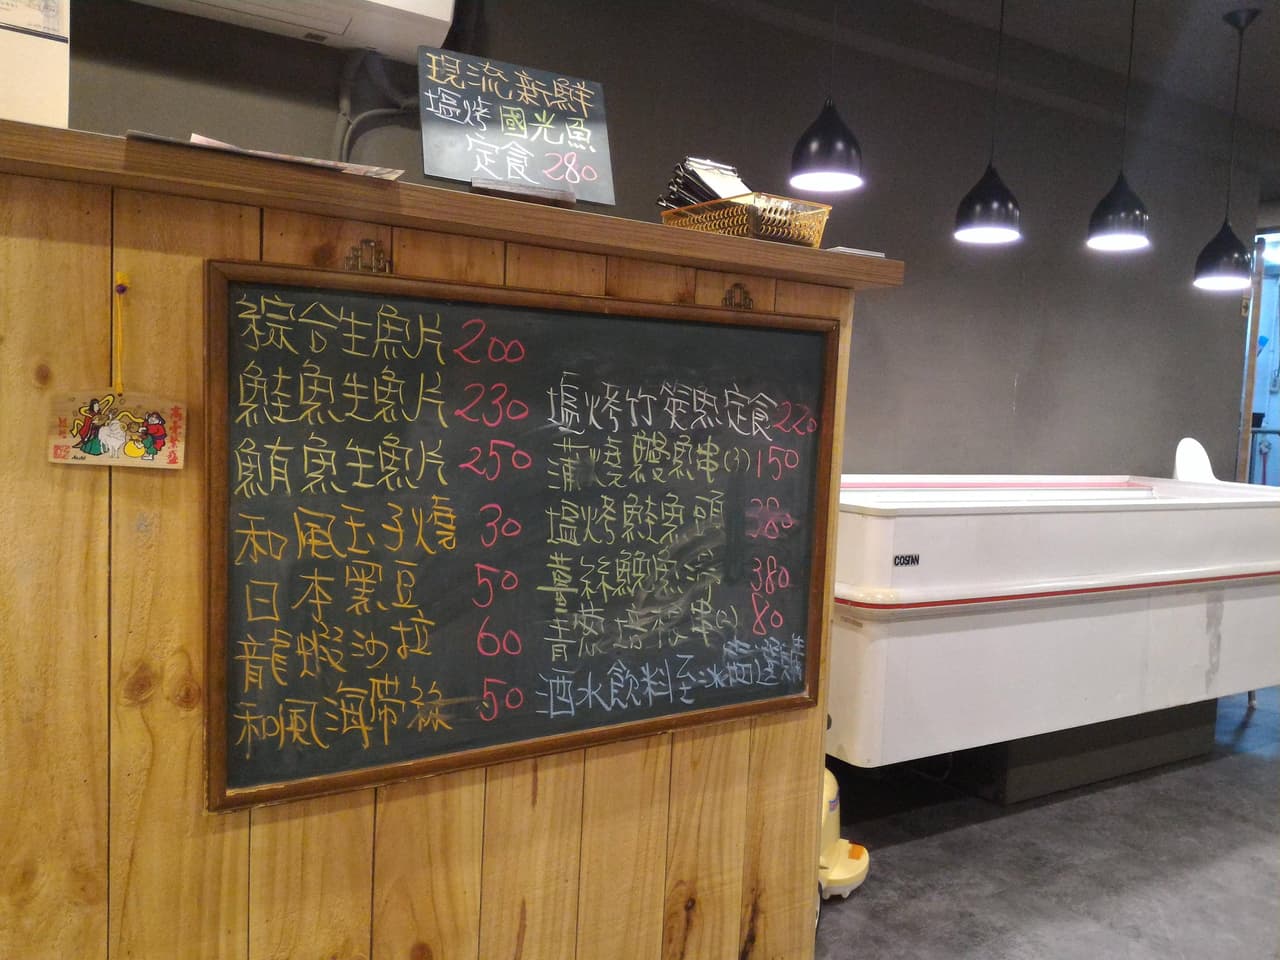 現流新鮮
塩烤國光魚
定食280
綜合生魚片 200
鮭魚生魚片 230
鮪魚生魚片 250
和風玉子燒 30
日本黑豆 50
龍蝦沙拉 60
和風海帶絲 50
塩烤竹筴魚定食 220
蒲燒鰻魚串(1) 150
塩烤鮭魚頭 380
薑絲鱸魚湯 380
青蔥 串(2) 80
酒水飲料至冰箱選購
COSTAN